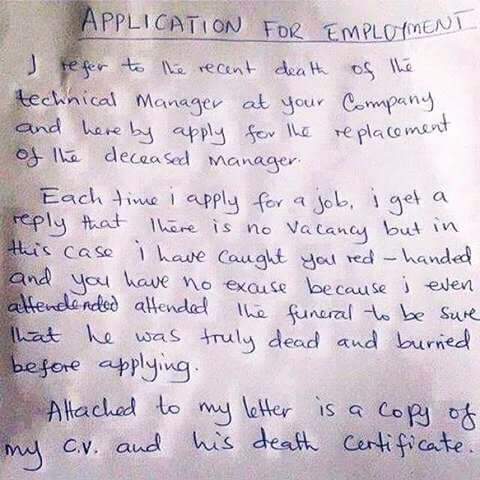 APPLICATION FOR EMPLOYMENT
I refer to the recent death of the
technical Manager at your Company
and here by apply for the replacement
of the deceased Manager.
Each time i apply for a job, i get a
reply that there is no Vacancy but in
this case i have caught you red-handed
and you have no excuse because i even
attendended attended the funeral to be sure
that he was truly dead and burried
before applying.
Attached to my letter is a copy of
my C.V. and his death certificate.